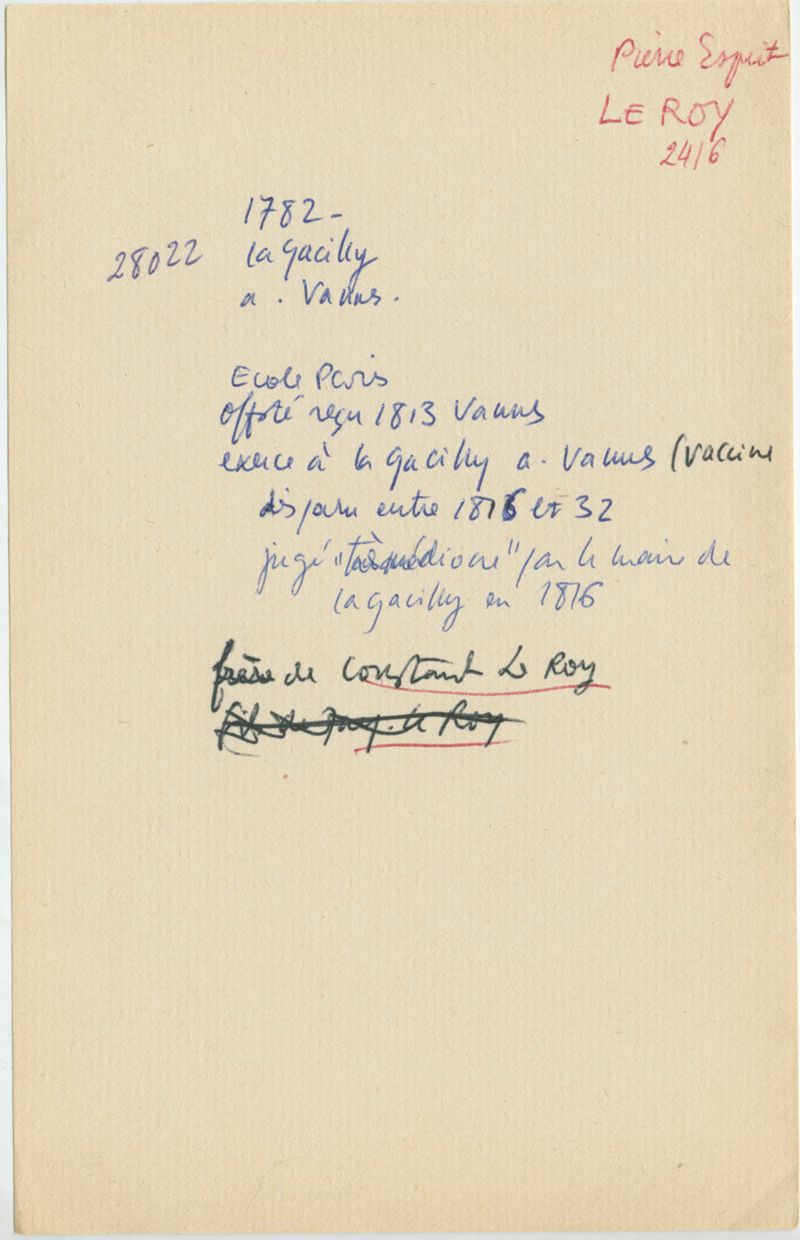 Pierre Esprit
LE ROY
24/6
1782 -
28022 la Gacilly
a . Vannes.
Ecole Paris
offsté reçu 1813 Vannes
exerce à la Gacilly a. Vannes (vaccine
disparu entre 1816 et 32
jugé "très médiocre" par le maire de
la Gacilly en 1816
frère de Constant Le Roy
fils de Le Roy